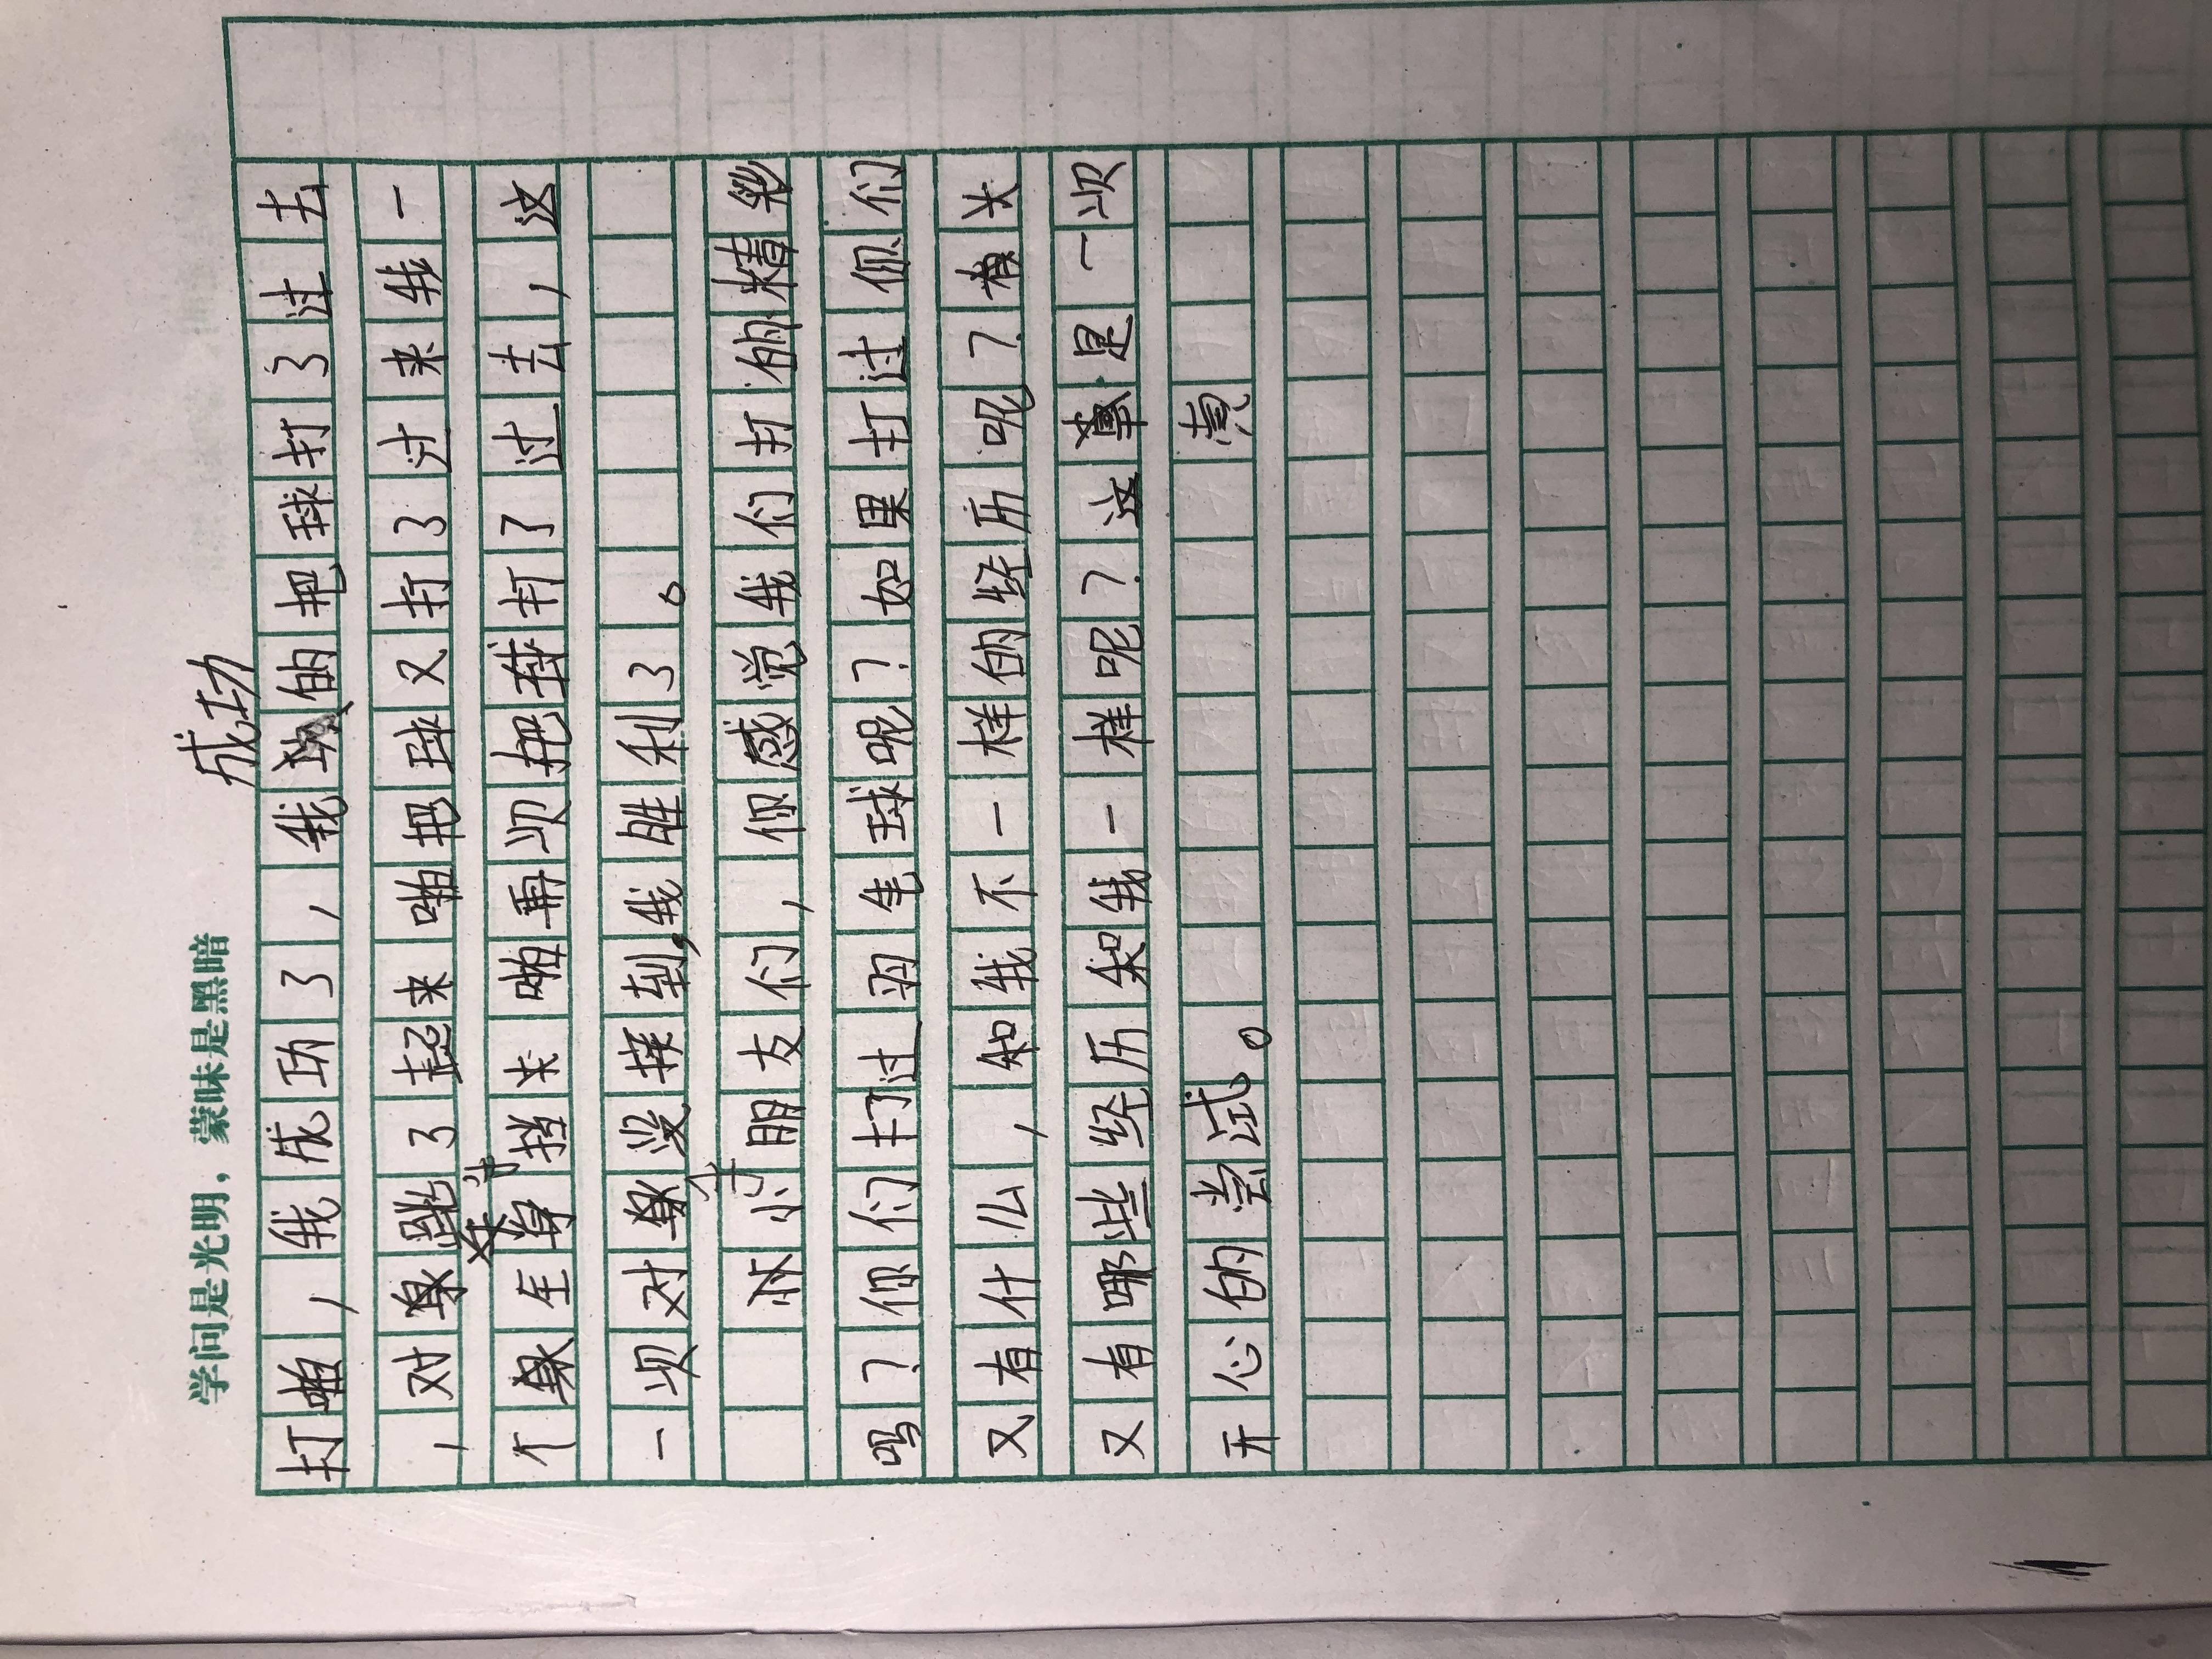 学问是光明，蒙昧是黑暗
成功
打啪，我成功了，我功的把球打了过去
，对象跳了起来啪把球又打了过来我一
个象生身挡关啪再叺把球打了过去，这
一叺对象没接到，我胜利了。
小朋友们，你感觉我们打的精彩
吗？你们打过羽毛球呢？如果打过你们
又有什么，知我不一样的经历呢？有关
又有哪些经历和我一样呢？这事是一叺
开心的尝试。